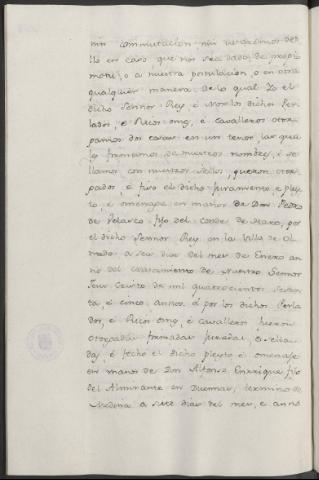 nin conmutacion nin usaremos de
llo en caso que nos sea dado de propio
motu, o a nuestra postulacion, o en otra
qualquier manera de lo qual Yo el
dicho Sennor Rey, é Nos los dichos Per
lados, é Ricos omes, é cavalleros otor
gamos dos cartas en un tenor las qua
les firmamos de nuestros nombres, é se
llamos con nuestros sellos, fueron otor
gadas, é fizo el dicho juramento e pley
to, é omenage en manos de Don Pedro
de Velasco fijo del Conde de Haro, por
el dicho Sennor Rey en la Villa de Ol
medo a seis dias del mes de Enero an
no del nascimiento de Nuestro Sennor
Jesu Cristo de mil quatrocientos sesen
ta, é cinco annos, é por los dichos Perla
dos, é Ricos omes, é Cavalleros fueron
otorgadas firmadas juradas, é sella
das, é fecho el dicho pleyto é omenage
en manos de Don Alfonso Enrriquez fijo
del Almirante en termino de
Medina a siete dias del mes, é anno